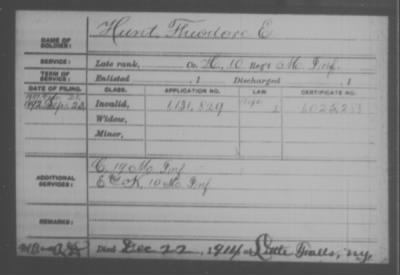 NAME OF SOLDIER: Hunt, Theodore E
SERVICE: Late rank, Co. H, 10 Reg't Mo. Inf.
TERM OF SERVICE: Enlisted , 1 Discharged , 1
DATE OF FILING. CLASS. APPLICATION NO. LAW. CERTIFICATE NO.
Invalid, 1,131,829
Widow,
Minor,
ADDITIONAL SERVICES: C, 19 Mo Inf
E & K, 10 Mo. Inf
REMARKS:
Died Dec 22, 1914, at Little Falls, NY.